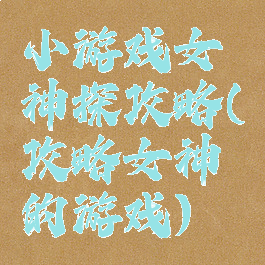 小游戏女
神探攻略(
攻略女神
的游戏)